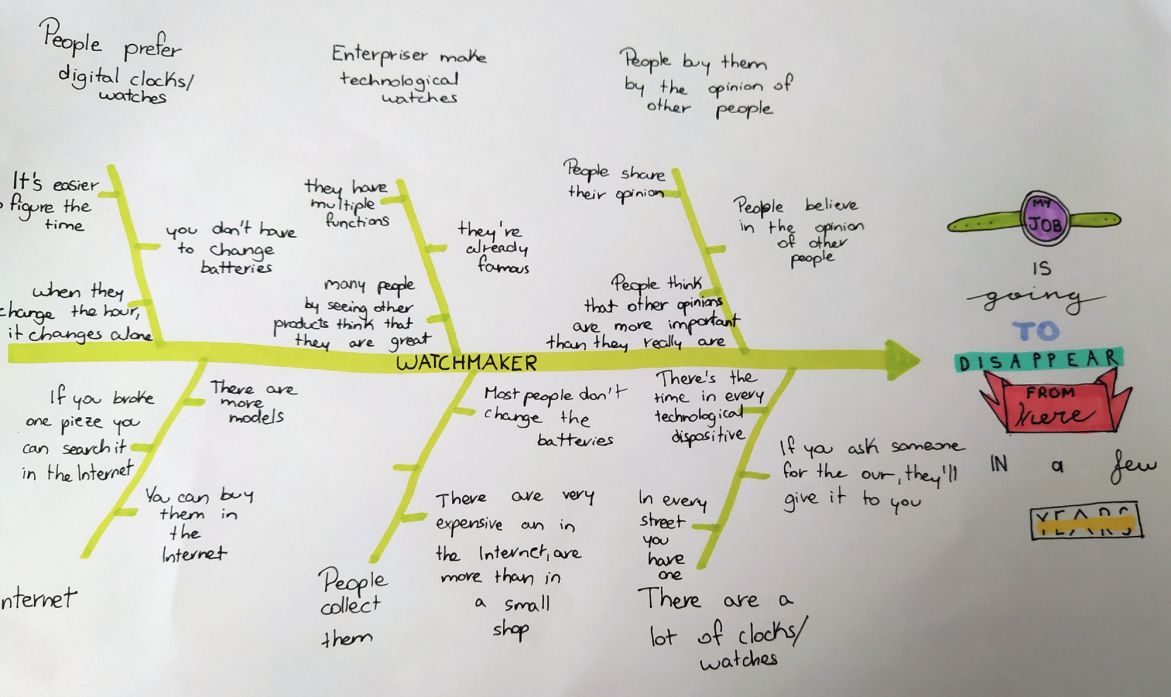 People prefer
digital clocks/
watches
Enterpriser make
technological
watches
People buy them
by the opinion of
other people
It's easier
figure the
time
you don't have
to change
batteries
when they
change the hour,
it changes alone
they have
multiple
functions
they're
already
famous
many people
by seeing other
products think that
they are great
People share
their opinion
People believe
in the opinion
of other
people
People think
that other opinions
are more important
than they really are
WATCHMAKER
There are
more
models
If you broke
one pieze you
can search it
in the Internet
You can buy
them in
the
Internet
nternet
Most people don't
change the
batteries
There are very
expensive an in
the Internet, are
more than in
a small
shop
People
collect
them
There's the
time in every
technological
dispositive
If you ask someone
for the our, they'll
give it to you
In every
street
you
have
one
There are a
lot of clocks/
watches
MY
JOB
IS
going
TO
DISAPPEAR
FROM
Here
IN a few
YEARS